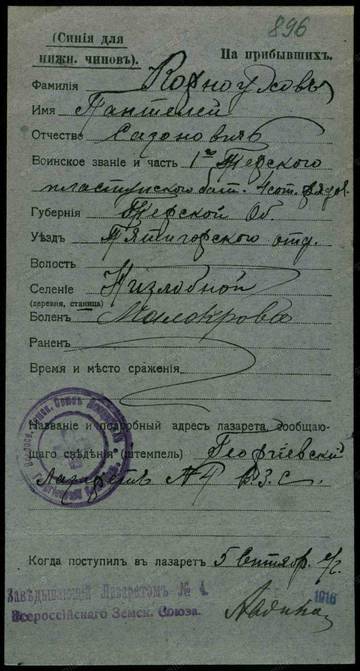 896
(Синія для
нижн. чиновъ).
На прибывшихъ.
Фамилія Корноуховъ
Имя Пантелей
Отчество
Воинское званіе и часть 1го Терского
пластунского бат. 4 сот. рядов.
Губернія Терской Об.
Уѣздъ Пятигорского отд.
Волость
Селеніе Незлобной
(деревня, станица)
Боленъ Малокровіе
Раненъ
Время и мѣсто сраженія
Названіе и подробный адресъ лазарета, сообщаю-
щаго свѣдѣнія (штемпель) Георгіевскій
Лазаретъ №4 В.З.С.
Когда поступилъ въ лазаретъ 5 Сентябр. с/г.
Завѣдывающій Лазаретомъ № 4.
Всероссійскаго Земск. Союза.
1916